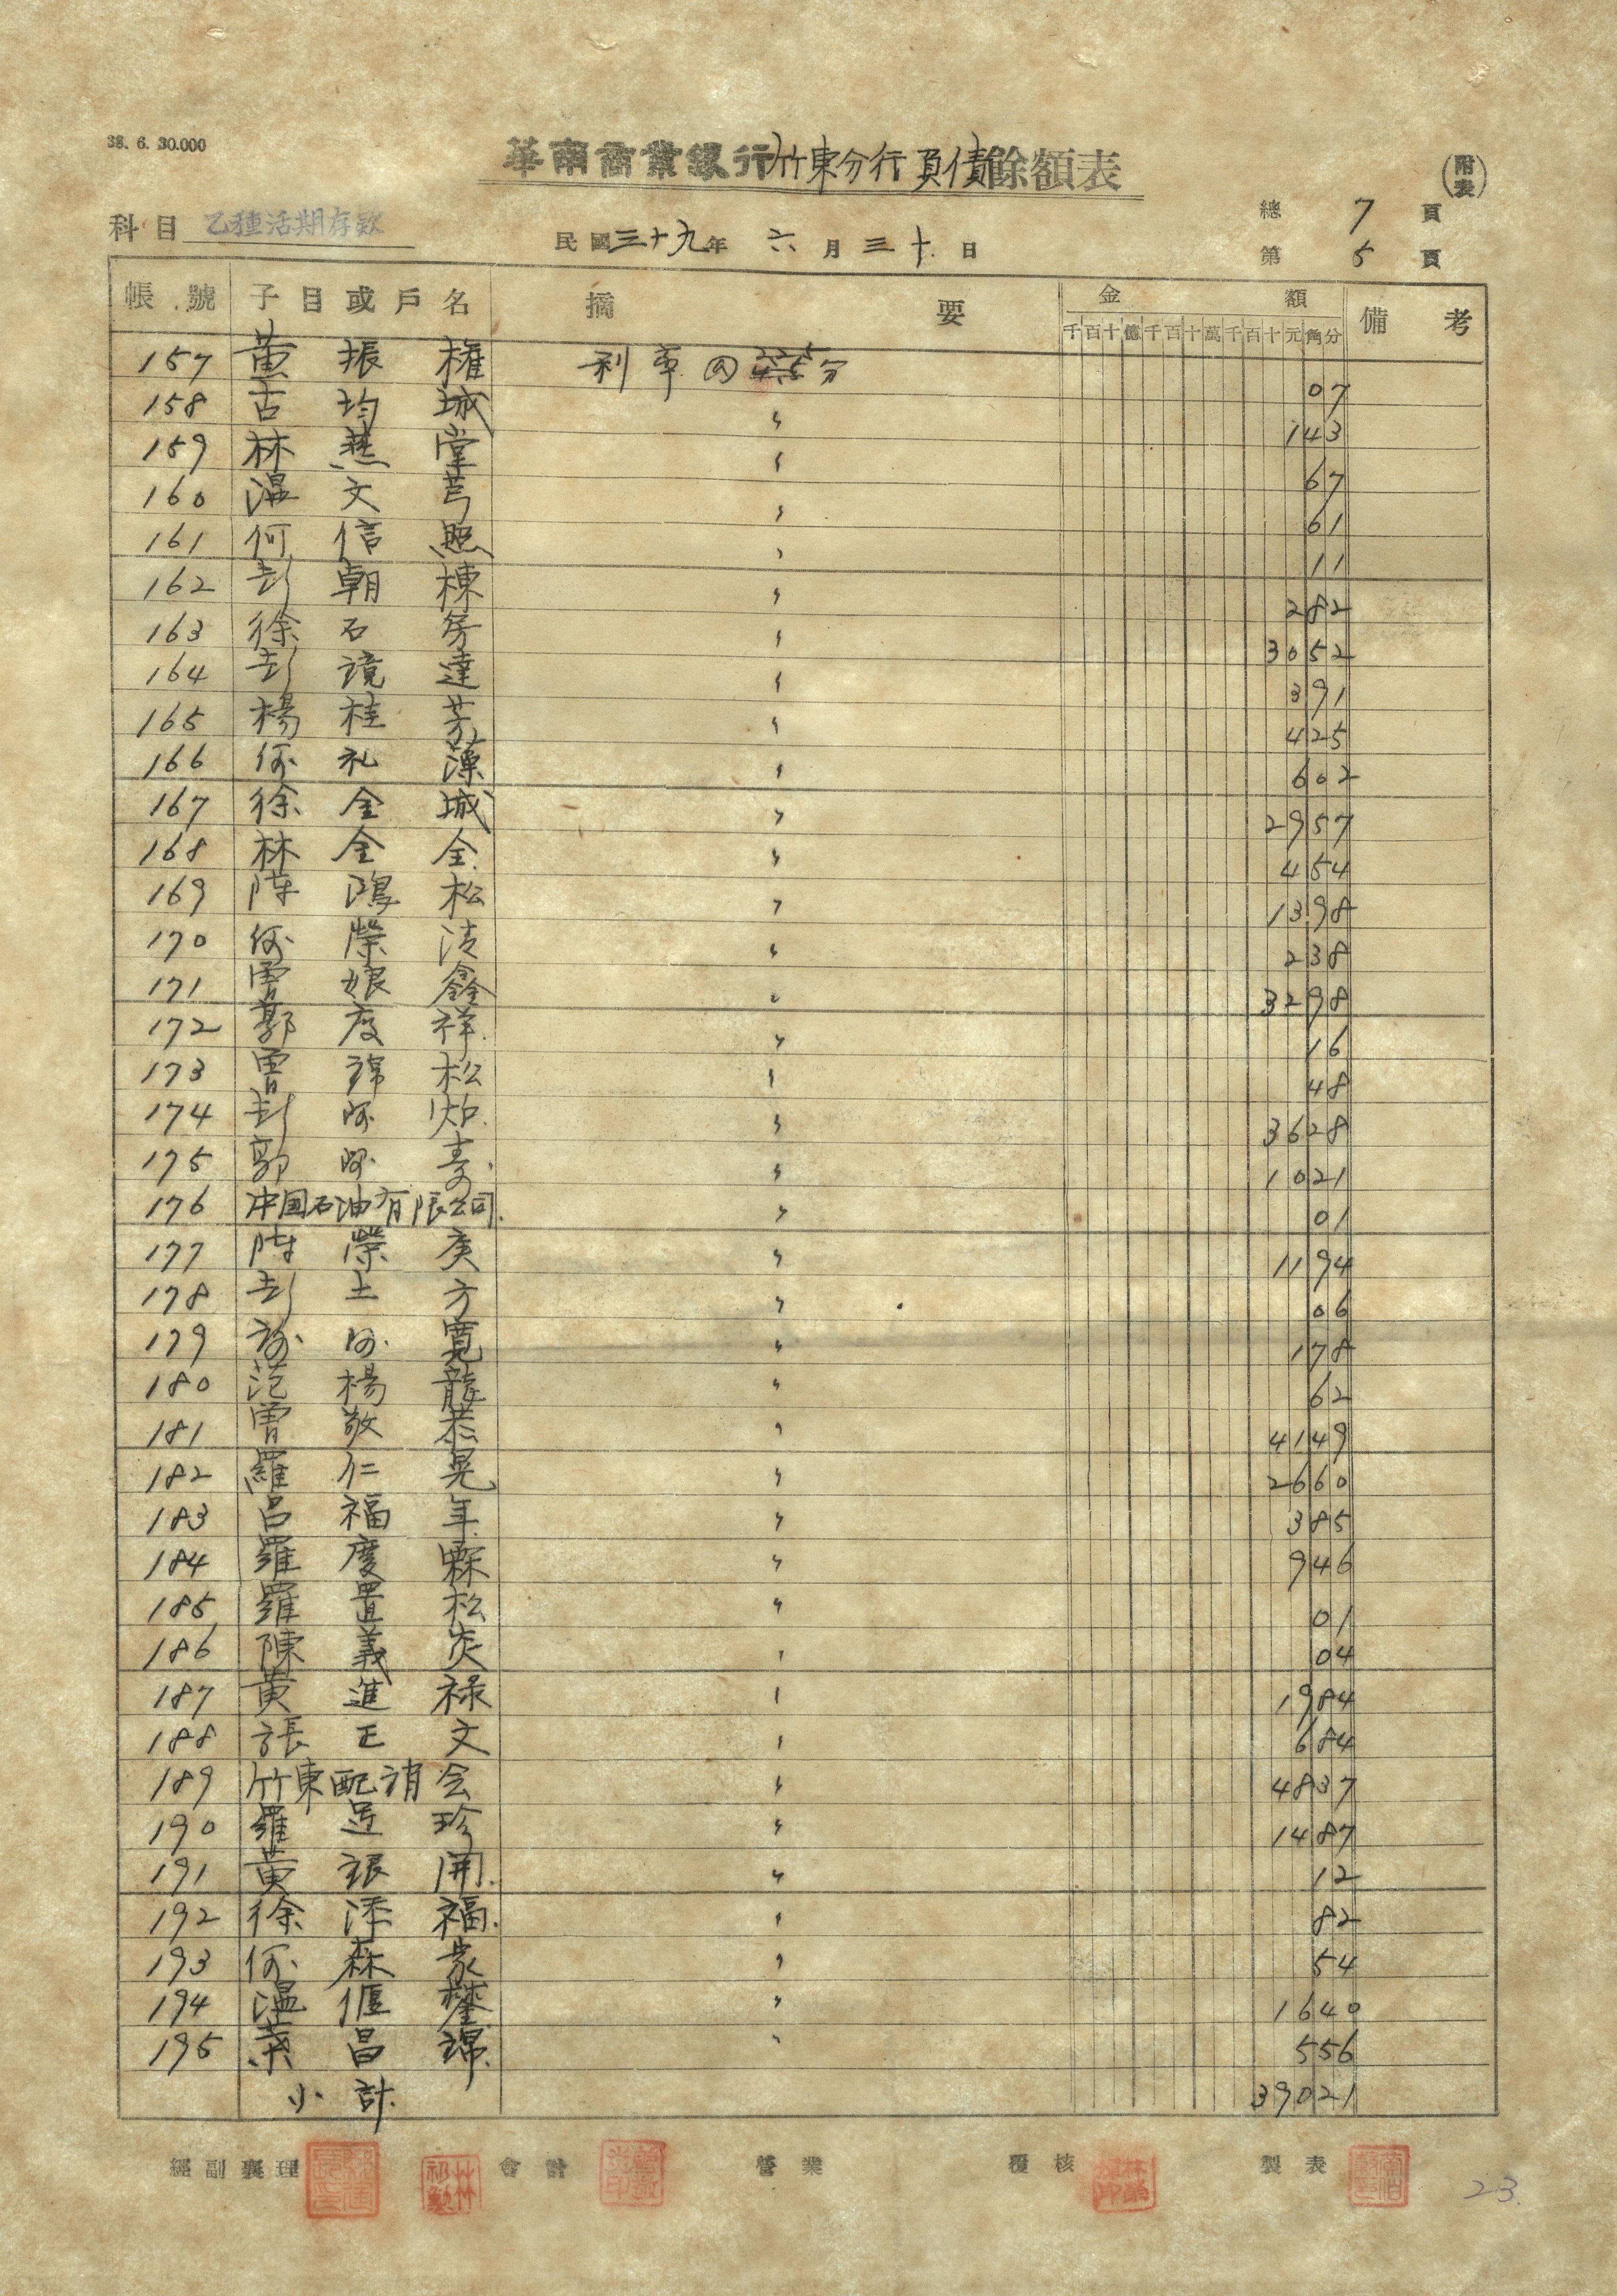 38. 6. 30.000
華南商業銀行竹東分行負債餘額表
(附表)
科目 乙種活期存款
民國三十九年 六月三十日
總 7 頁
第 5 頁
帳號 子目或戶名 摘要 金額 備考
千百十億千百十萬千百十元角分
157 黃振權 利率 分 07
158 古均城 〃 143
159 林燕堂 〃 67
160 溫文芎 〃 61
161 何信照 〃 11
162 彭朝棟 〃 282
163 徐石房 〃 3052
164 彭鏡達 〃 391
165 楊桂芳 〃 425
166 何礼藻 〃 602
167 徐金城 〃 2957
168 林金全 〃 454
169 陳鴻松 〃 1398
170 何榮清 〃 238
171 曾娘鑫 〃 3298
172 郭慶祥 〃 16
173 曾錦松 〃 48
174 彭阿炉 〃 3628
175 郭阿壽 〃 1021
176 中国石油有限公司 〃 01
177 陳榮庚 〃 1194
178 彭土方 〃 06
179 謝阿寬 〃 178
180 范楊龍 〃 62
181 曾敬恭 〃 4149
182 羅仁晃 〃 2660
183 呂福年 〃 385
184 羅慶霖 〃 946
185 羅置松 〃 01
186 陳義炎 〃 04
187 黃進祿 〃 1984
188 張正文 〃 684
189 竹東配消会 〃 4837
190 羅足珍 〃 1487
191 黃銀開 〃 12
192 徐添福 〃 82
193 何森家 〃 54
194 溫偃 〃 1640
195 葉昌錦 〃 556
小計 39021
經副襄理 會計 營業 覆核 製表
23.